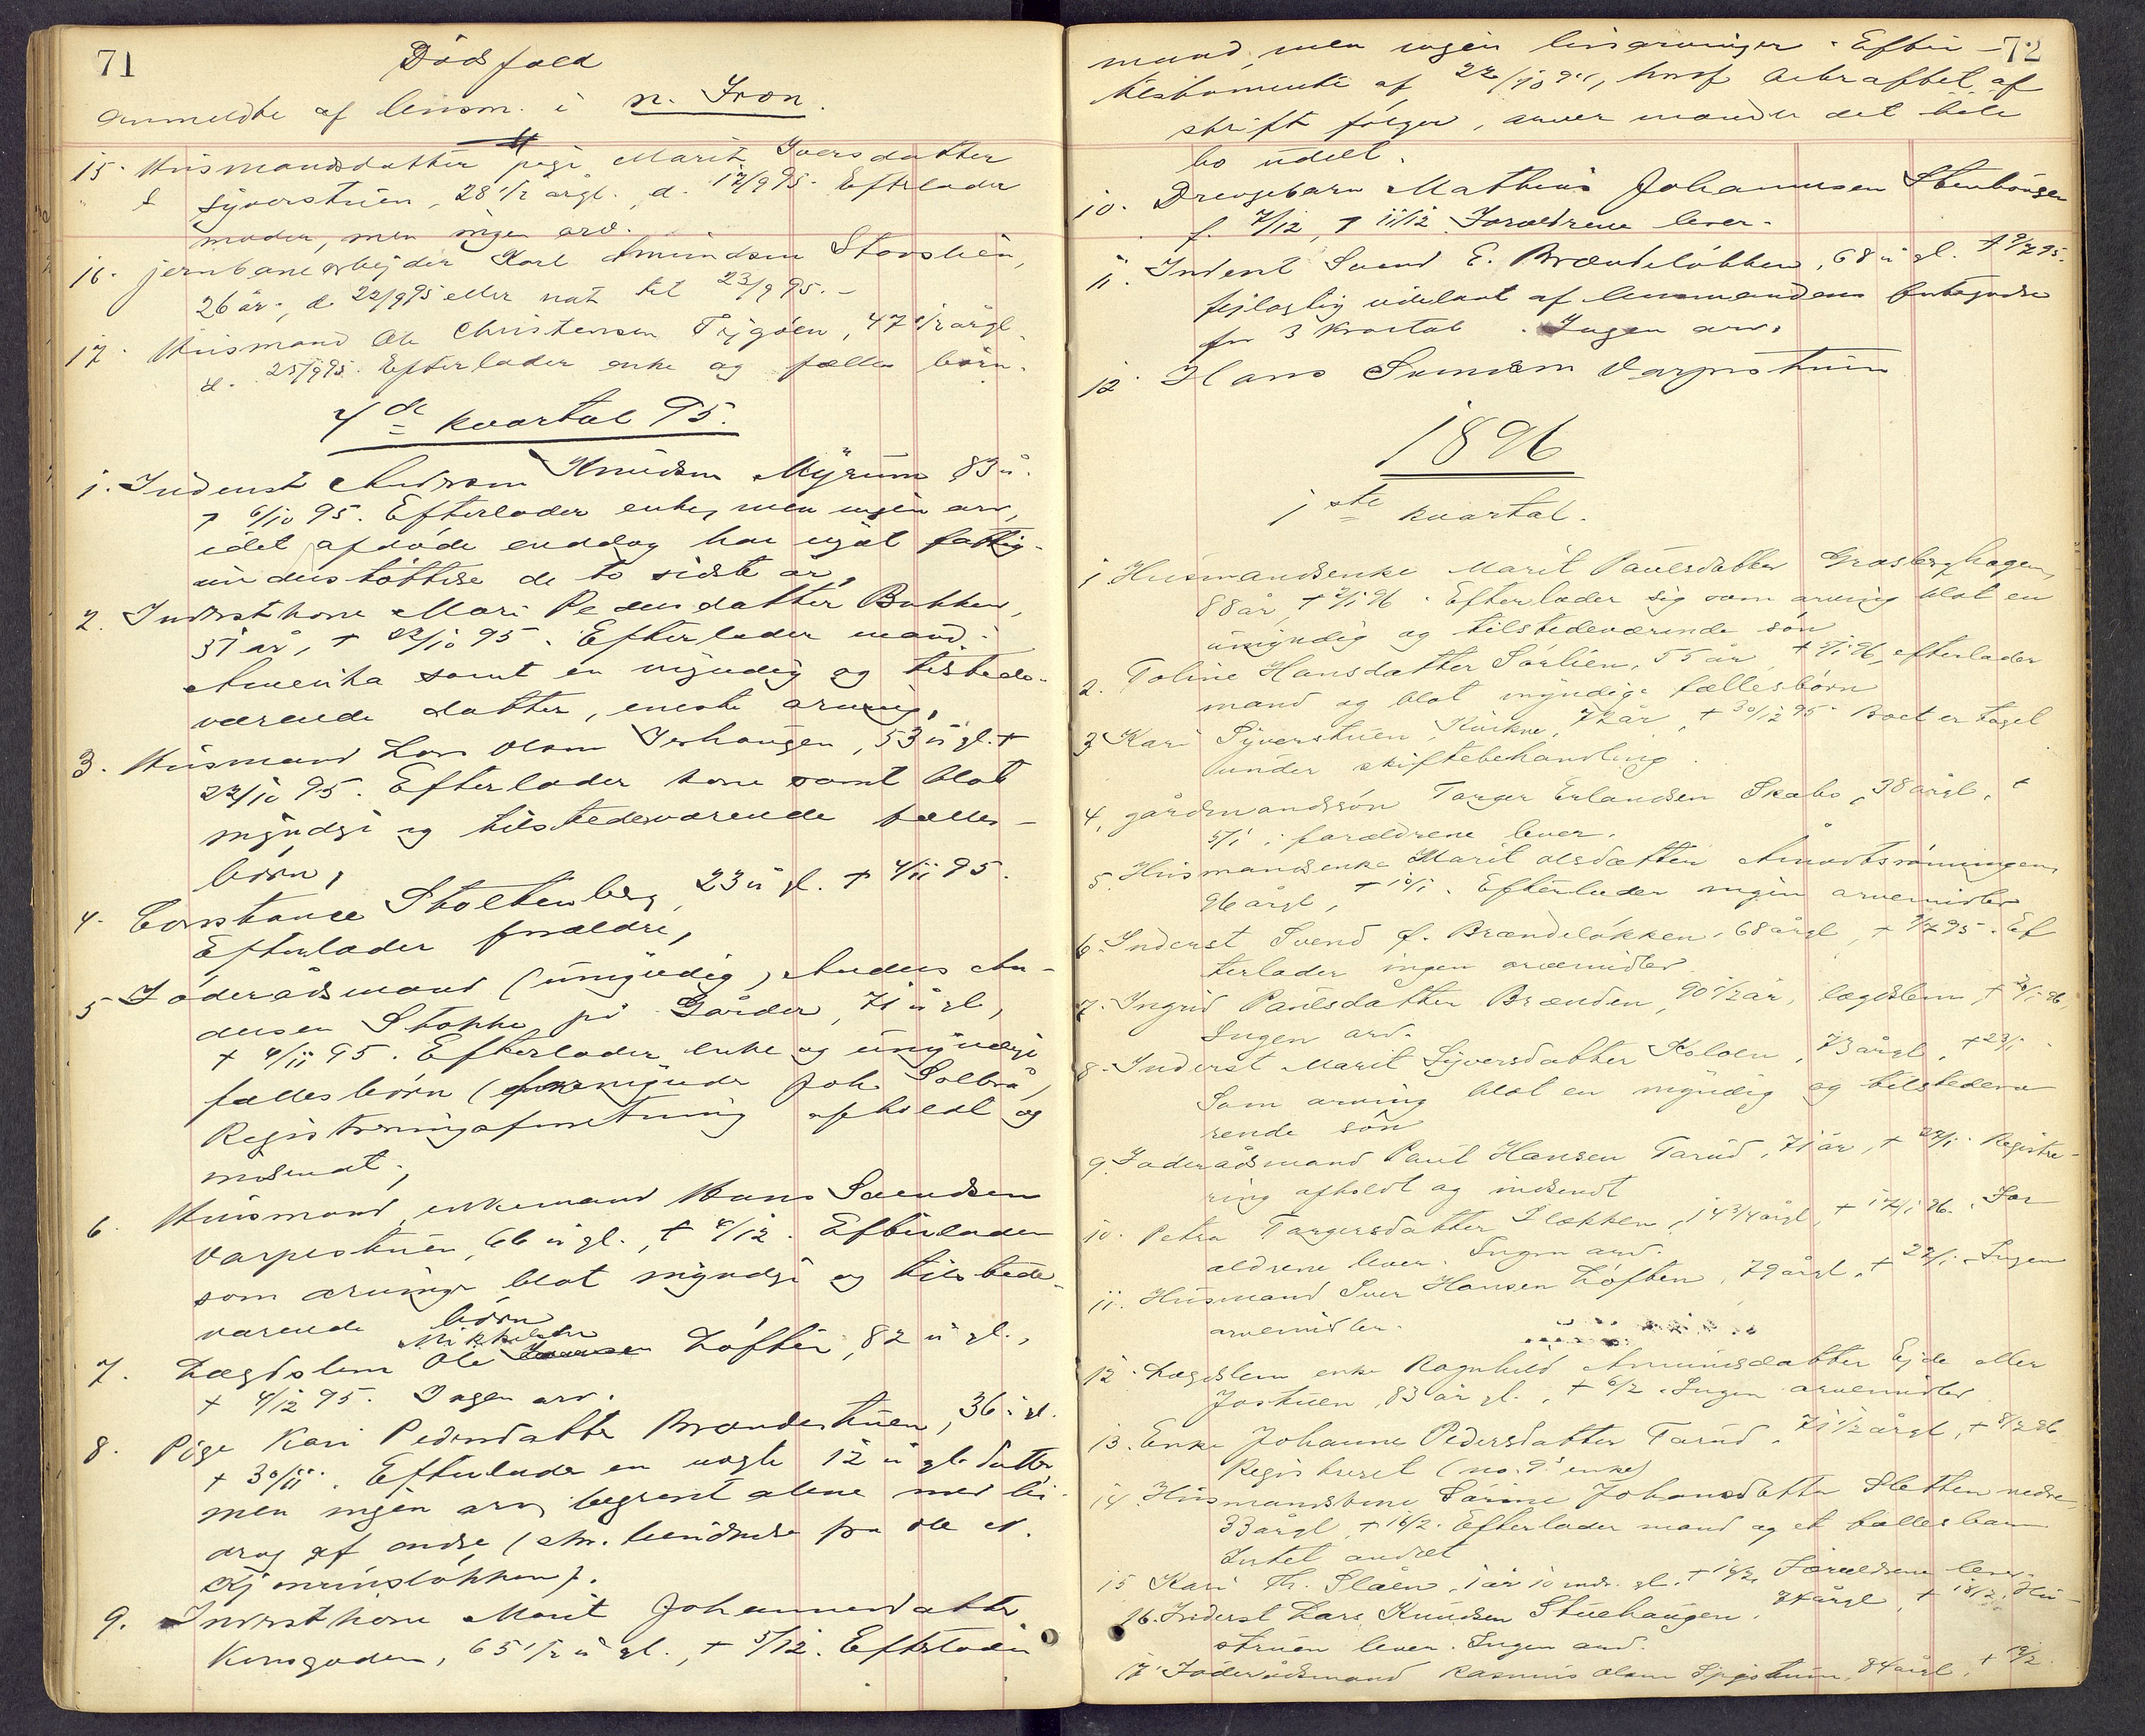 71
Dödsfald
anmeldte af lensm. i n. Fron.
15. Husmandsdatter pige Marit Iversdatter
Syverstuen, 28 1/2 årgl. d. 17/9 95. Efterlader
moder, men ingen arv.
16. jernbanearbejder Karl Amundsen
26 år, d. 22/9 95 eller nat til 23/9 95. –
17. Husmand Ole Christensen 47 1/2 årgl.
d. 25/9 95. Efterlader enke og fælles börn.
4de kvartal 95.
1. Inderst Andersen Knudsen Myrum 83 å.
† 6/10 95. Efterlader enke, men ingen arv,
idet afdöde enddog har nydt fattig-
understöttelse de to sidste år,
2. Inderstkone Mari Pedersdatter Bakken,
37 år, † 22/10 95. Efterlader mand i
Amerika samt en myndig og tilstede-
værende datter, eneste arving,
3. Husmand Lars Olsen 53 å gl. †
22/10 95. Efterlader kone samt blot
myndige og tilstedeværende fælles-
börn,
4. Constance Stoltenberg, 23 å gl. † 4/11 95.
Efterlader forældre,
5 Föderådsmand (umyndig) Anders An-
dersen Stokke på Gårder, 71 å gl,
† 4/11 95. Efterlader enke og umyndige
fælles börn (formynder Joh. Solbrå,
Registreringsforretning afholdt og
indsendt,
6. Husmand, enkemand Hans Svendsen
Varpestuen, 66 å gl., † 4/12. Efterlader
som arvinge blot myndige og tilstede-
værende börn
Mikkelsen
7. Lægdslem Ole Löften, 82 å gl.,
† 4/12 95. Ingen arv.
8. Pige Kari Pedersdatter Brændestuen, 36 å gl.
† 30/11. Efterlader en uægte 12 å gl. datter
men ingen arv, begravet alene med bi-
drag af andre
9. Inderstkone Marit Johannesdatter
65 1/2 å gl., † 5/12. Efterlader
72
mand, men ingen livsarvinger. Efter
testamente af 22/10 hvoraf bekræftet af
skrift fölger, arver manden det hele
bo udelt.
10. Drengebarn Mathias Johannesen Stenhaugen
f. 7/12, † 11/12. Forældrene lever.
11. Inderst Svend E. Brændelökken, 68 å gl. † 9/7 95.
fejlagtig udeladt af lensmandens
for 3 kvartal. Ingen arv.
12. Hans Svendsen Varpestuen
1896
1ste kvartal.
1 Husmandsenke Marit Paulsdatter Grasberghagen,
88 år, † 2/1 96. Efterlader sig som arving blot en
umyndig og tilstedeværende sön
2. Toline Hansdatter Sörlien, 55 år, † 9/1 96, efterlader
mand og blot myndige fællesbörn
3 Kari Syverstuen, Kvikne, 72 år, † 30/12 95. Boet er taget
under skiftebehandling.
4, gårdmandssön Torger Erlandsen Skabo, 38 årgl. †
5/1. forældrene lever.
5. Husmandsenke Marit Olsdatter
96 årgl, † 10/1. Efterlader ingen arvemidler
6. Inderst Svend E. Brændelökken, 68 årgl, † 9/7 95. Ef
terlader ingen arvemidler.
7. Ingrid Paulsdatter Brænden, 90 1/2 år, lægdslem,
Ingen arv.
8. Inderst Marit Syversdatter Kolden, 73 årgl, † 23/1
Som arving blot en myndig og tilstedevæ
rende sön
9. Föderådsmand Paul Hansen Tarud, 71 år, † 27/1. Registre-
ring afholdt og indsendt
10. Petra Torgersdatter 14 3/4 årgl, † 17/1 96. For
ældrene lever. Ingen arv.
11. Husmand Iver Hansen Löften, 79 årgl, † 22/1. Ingen
arvemidler.
12. Lægdslem enke Ragnhild Amundsdatter Ejde eller
Jostuen, 83 år gl., † 6/2. Ingen arvemidler
13. Enke Johanne Pedersdatter Tarud, 71 1/2 årgl, † 8/2 96
Registreret (no. 9' enke)
14. Husmandskone Sörine Johansdatter Sletten nedre
33 årgl, † 16/2. Efterlader mand og et fællesbarn
Intet andet
15 Kari Th. Slåen, 1 år 10 mdr. gl. Forældrene lever.
16. Inderst Lars Knudsen Stuehaugen, † 18/2. Hu-
struen lever. Ingen arv.
17 Föderådsmand Rasmus Olsen 84 årgl, † 19/2